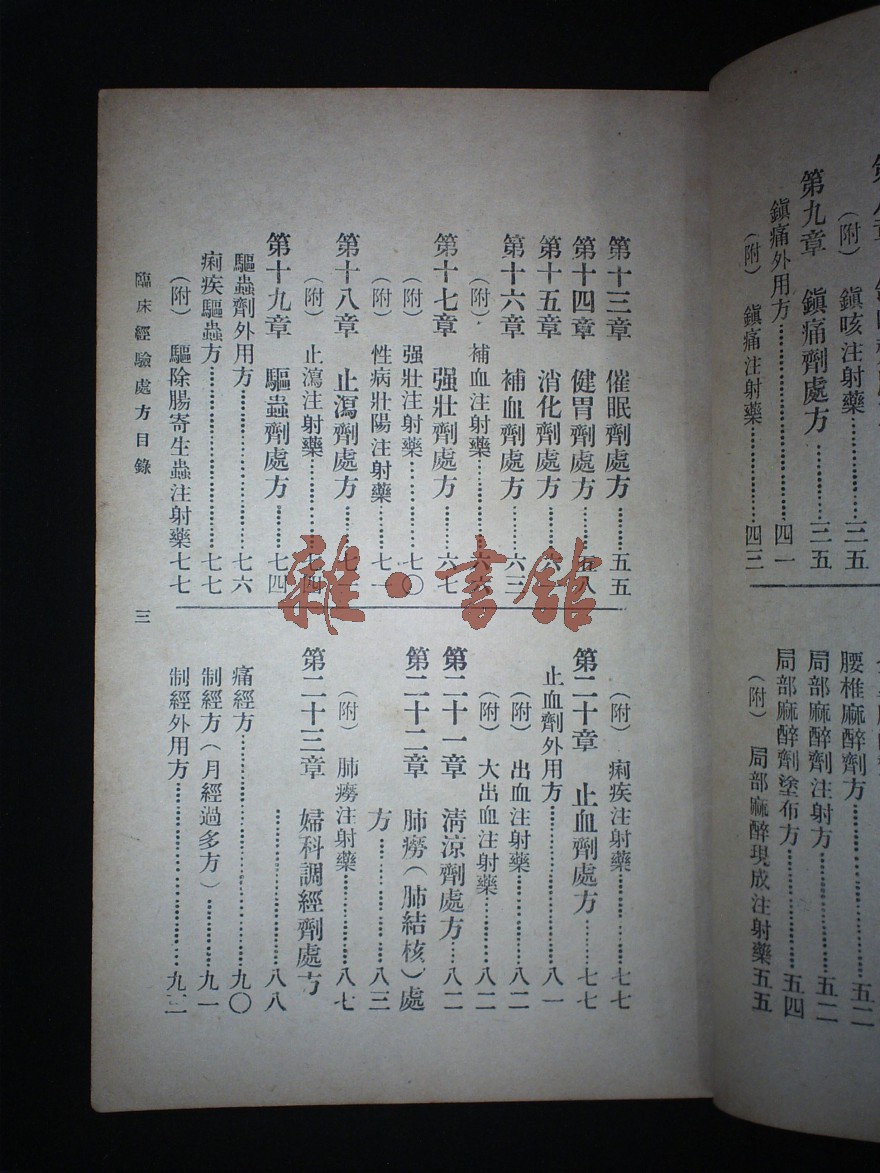 第九章　鎭痛劑處方……三五
（附）鎭咳注射藥……三五
鎭痛外用方……四一
（附）鎭痛注射藥……四三
腰椎麻醉劑方……五二
局部麻醉劑注射方……五二
局部麻醉劑塗布方……五四
（附）局部麻醉現成注射藥五五
第十三章　催眠劑處方……五五
第十四章　健胃劑處方……五八
第十五章　消化劑處方……六一
第十六章　補血劑處方……六三
（附）補血注射藥……六六
第十七章　强壯劑處方……六七
（附）强壯注射藥……七〇
（附）性病壯陽注射藥……七一
第十八章　止瀉劑處方……七一
（附）止瀉注射藥……七四
第十九章　驅蟲劑處方……七四
驅蟲劑外用方……七六
痢疾驅蟲方……七七
（附）驅除腸寄生蟲注射藥七七
（附）痢疾注射藥……七七
第二十章　止血劑處方……七七
止血劑外用方……八一
（附）出血注射藥……八二
（附）大出血注射藥……八二
第二十一章　淸涼劑處方…八二
第二十二章　肺癆（肺結核）處
方……八三
（附）肺癆注射藥……八七
第二十三章　婦科調經劑處方
……八八
痛經方……九〇
制經方（月經過多方）……九一
制經外用方……九二
臨床經驗處方目錄　三
雜・書館